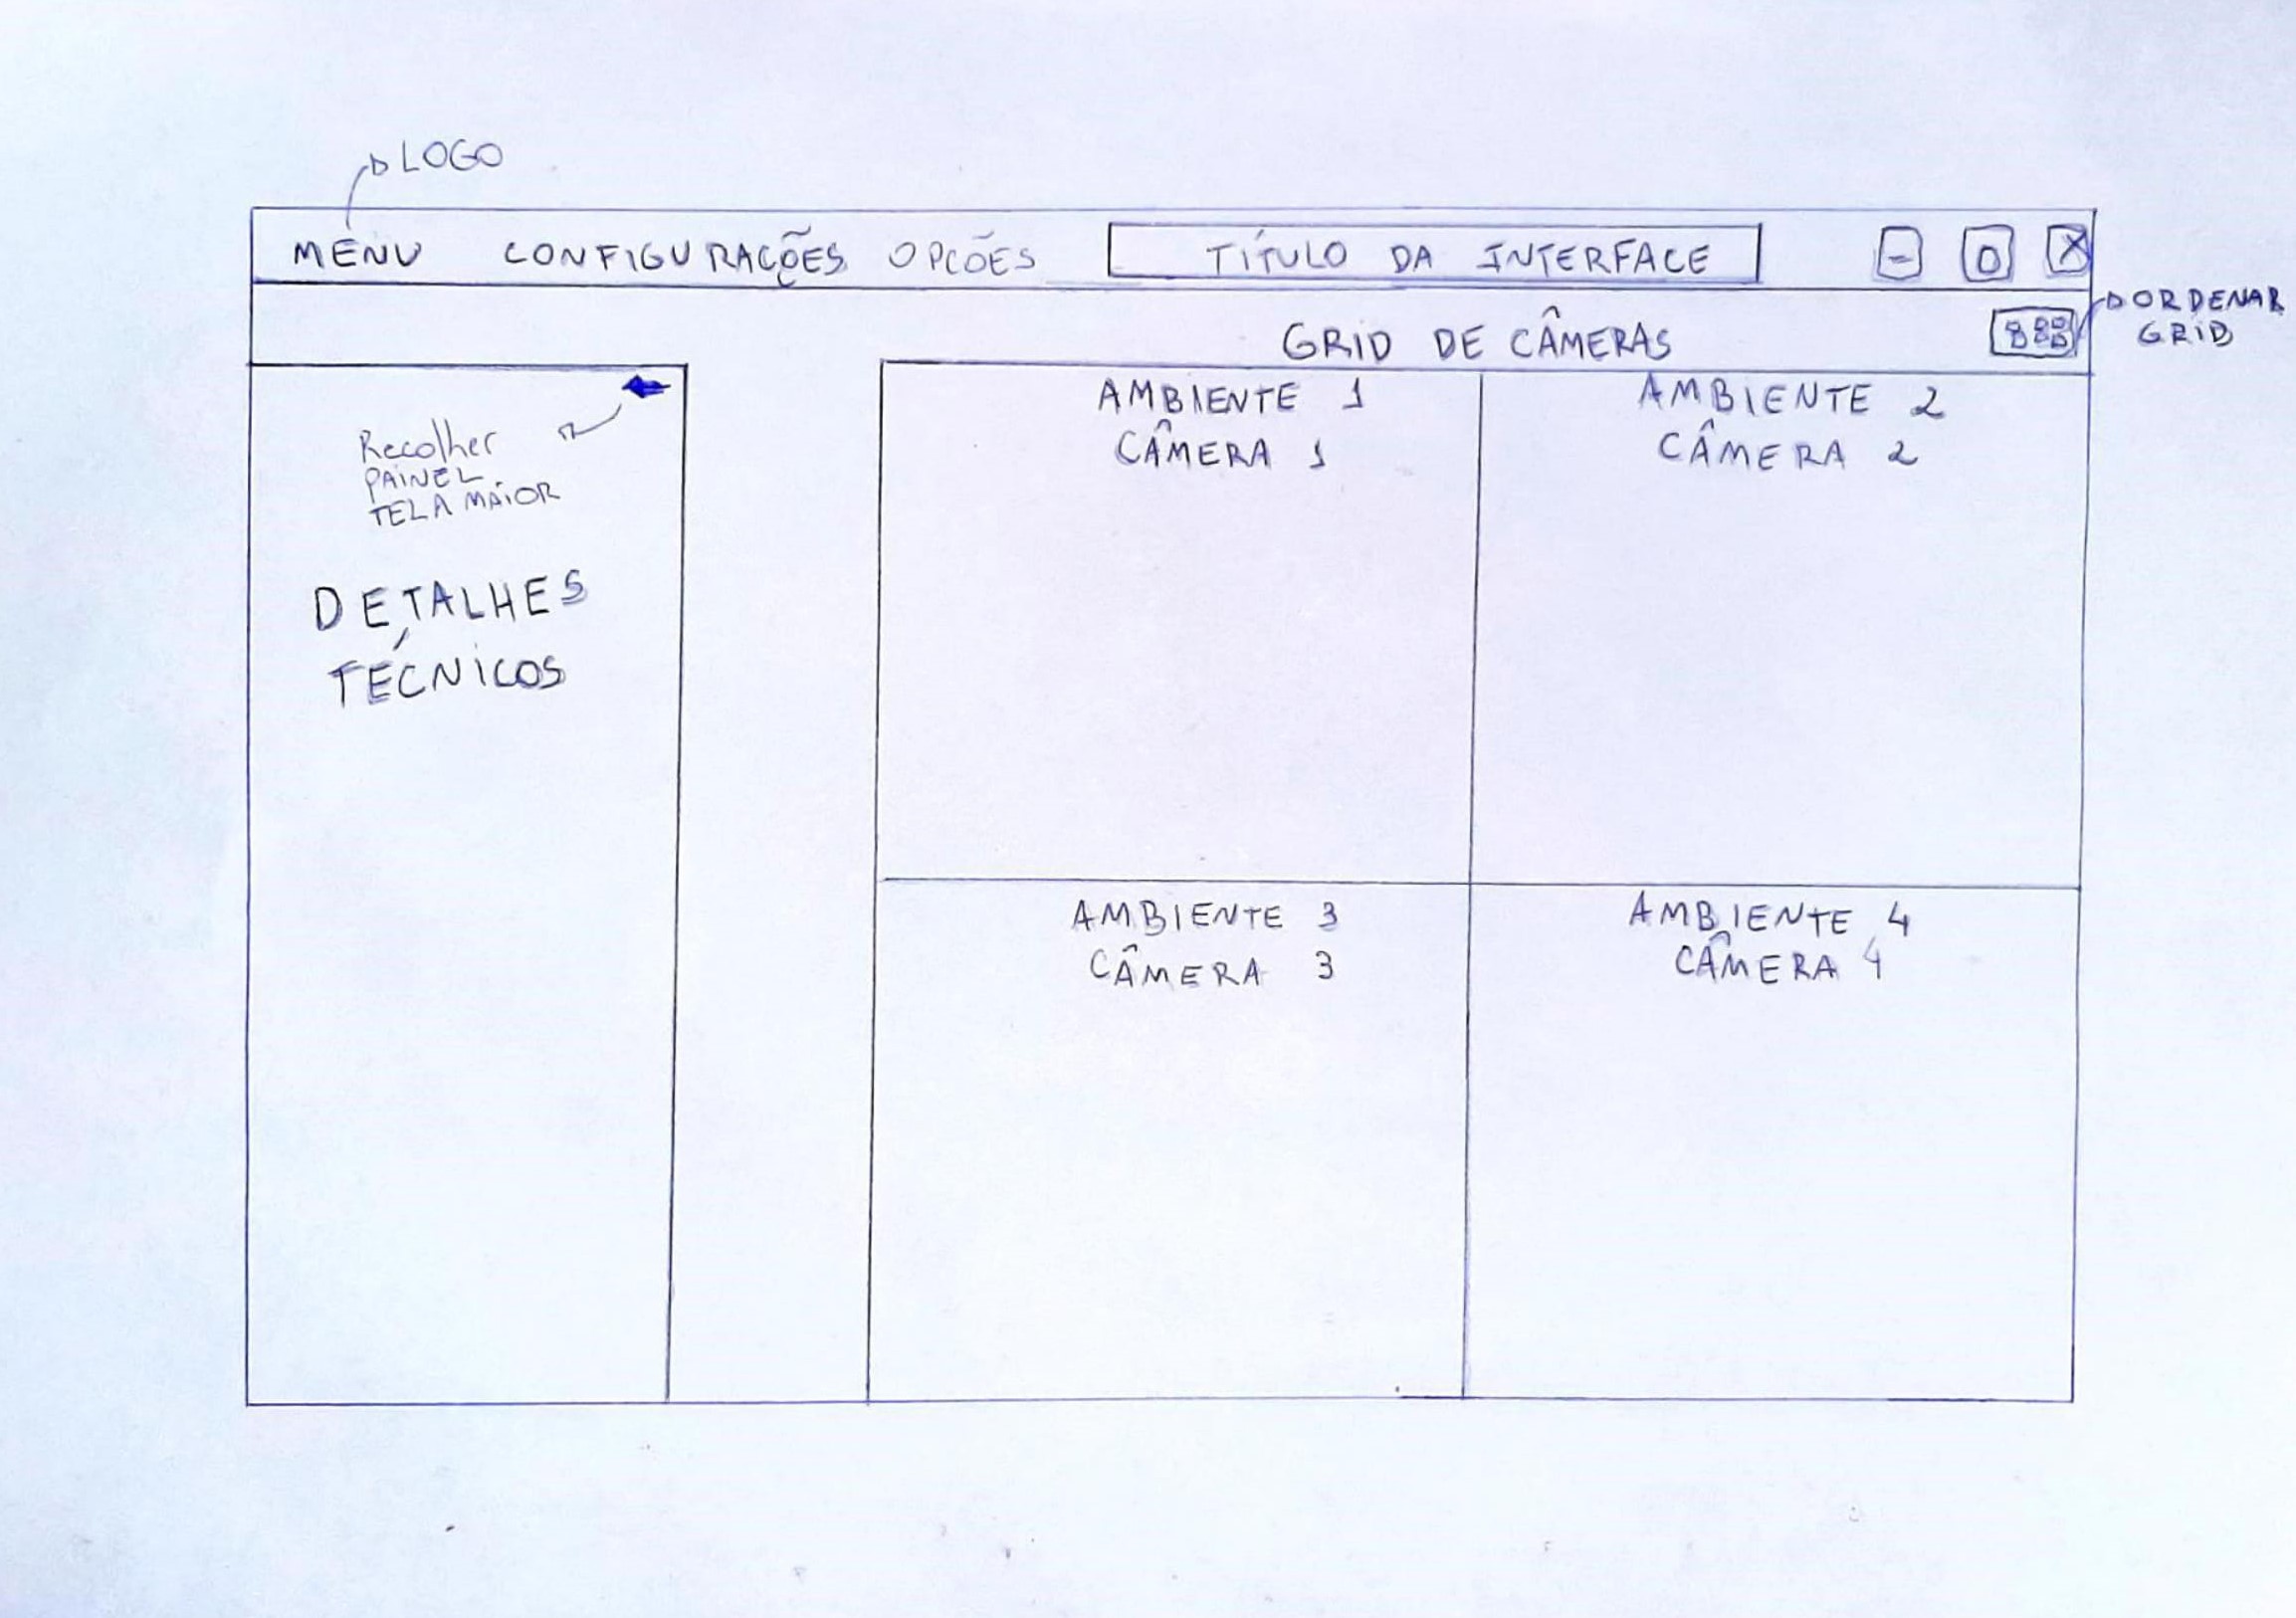 LOGO
MENU CONFIGURAÇÕES OPCÕES TÍTULO DA INTERFACE - O X
ORDENAR
GRID
GRID DE CÂMERAS
Recolher
PAINEL
TELA MAIOR
DETALHES
TÉCNICOS
AMBIENTE 1
CÂMERA 1
AMBIENTE 2
CÂMERA 2
AMBIENTE 3
CÂMERA 3
AMBIENTE 4
CÂMERA 4